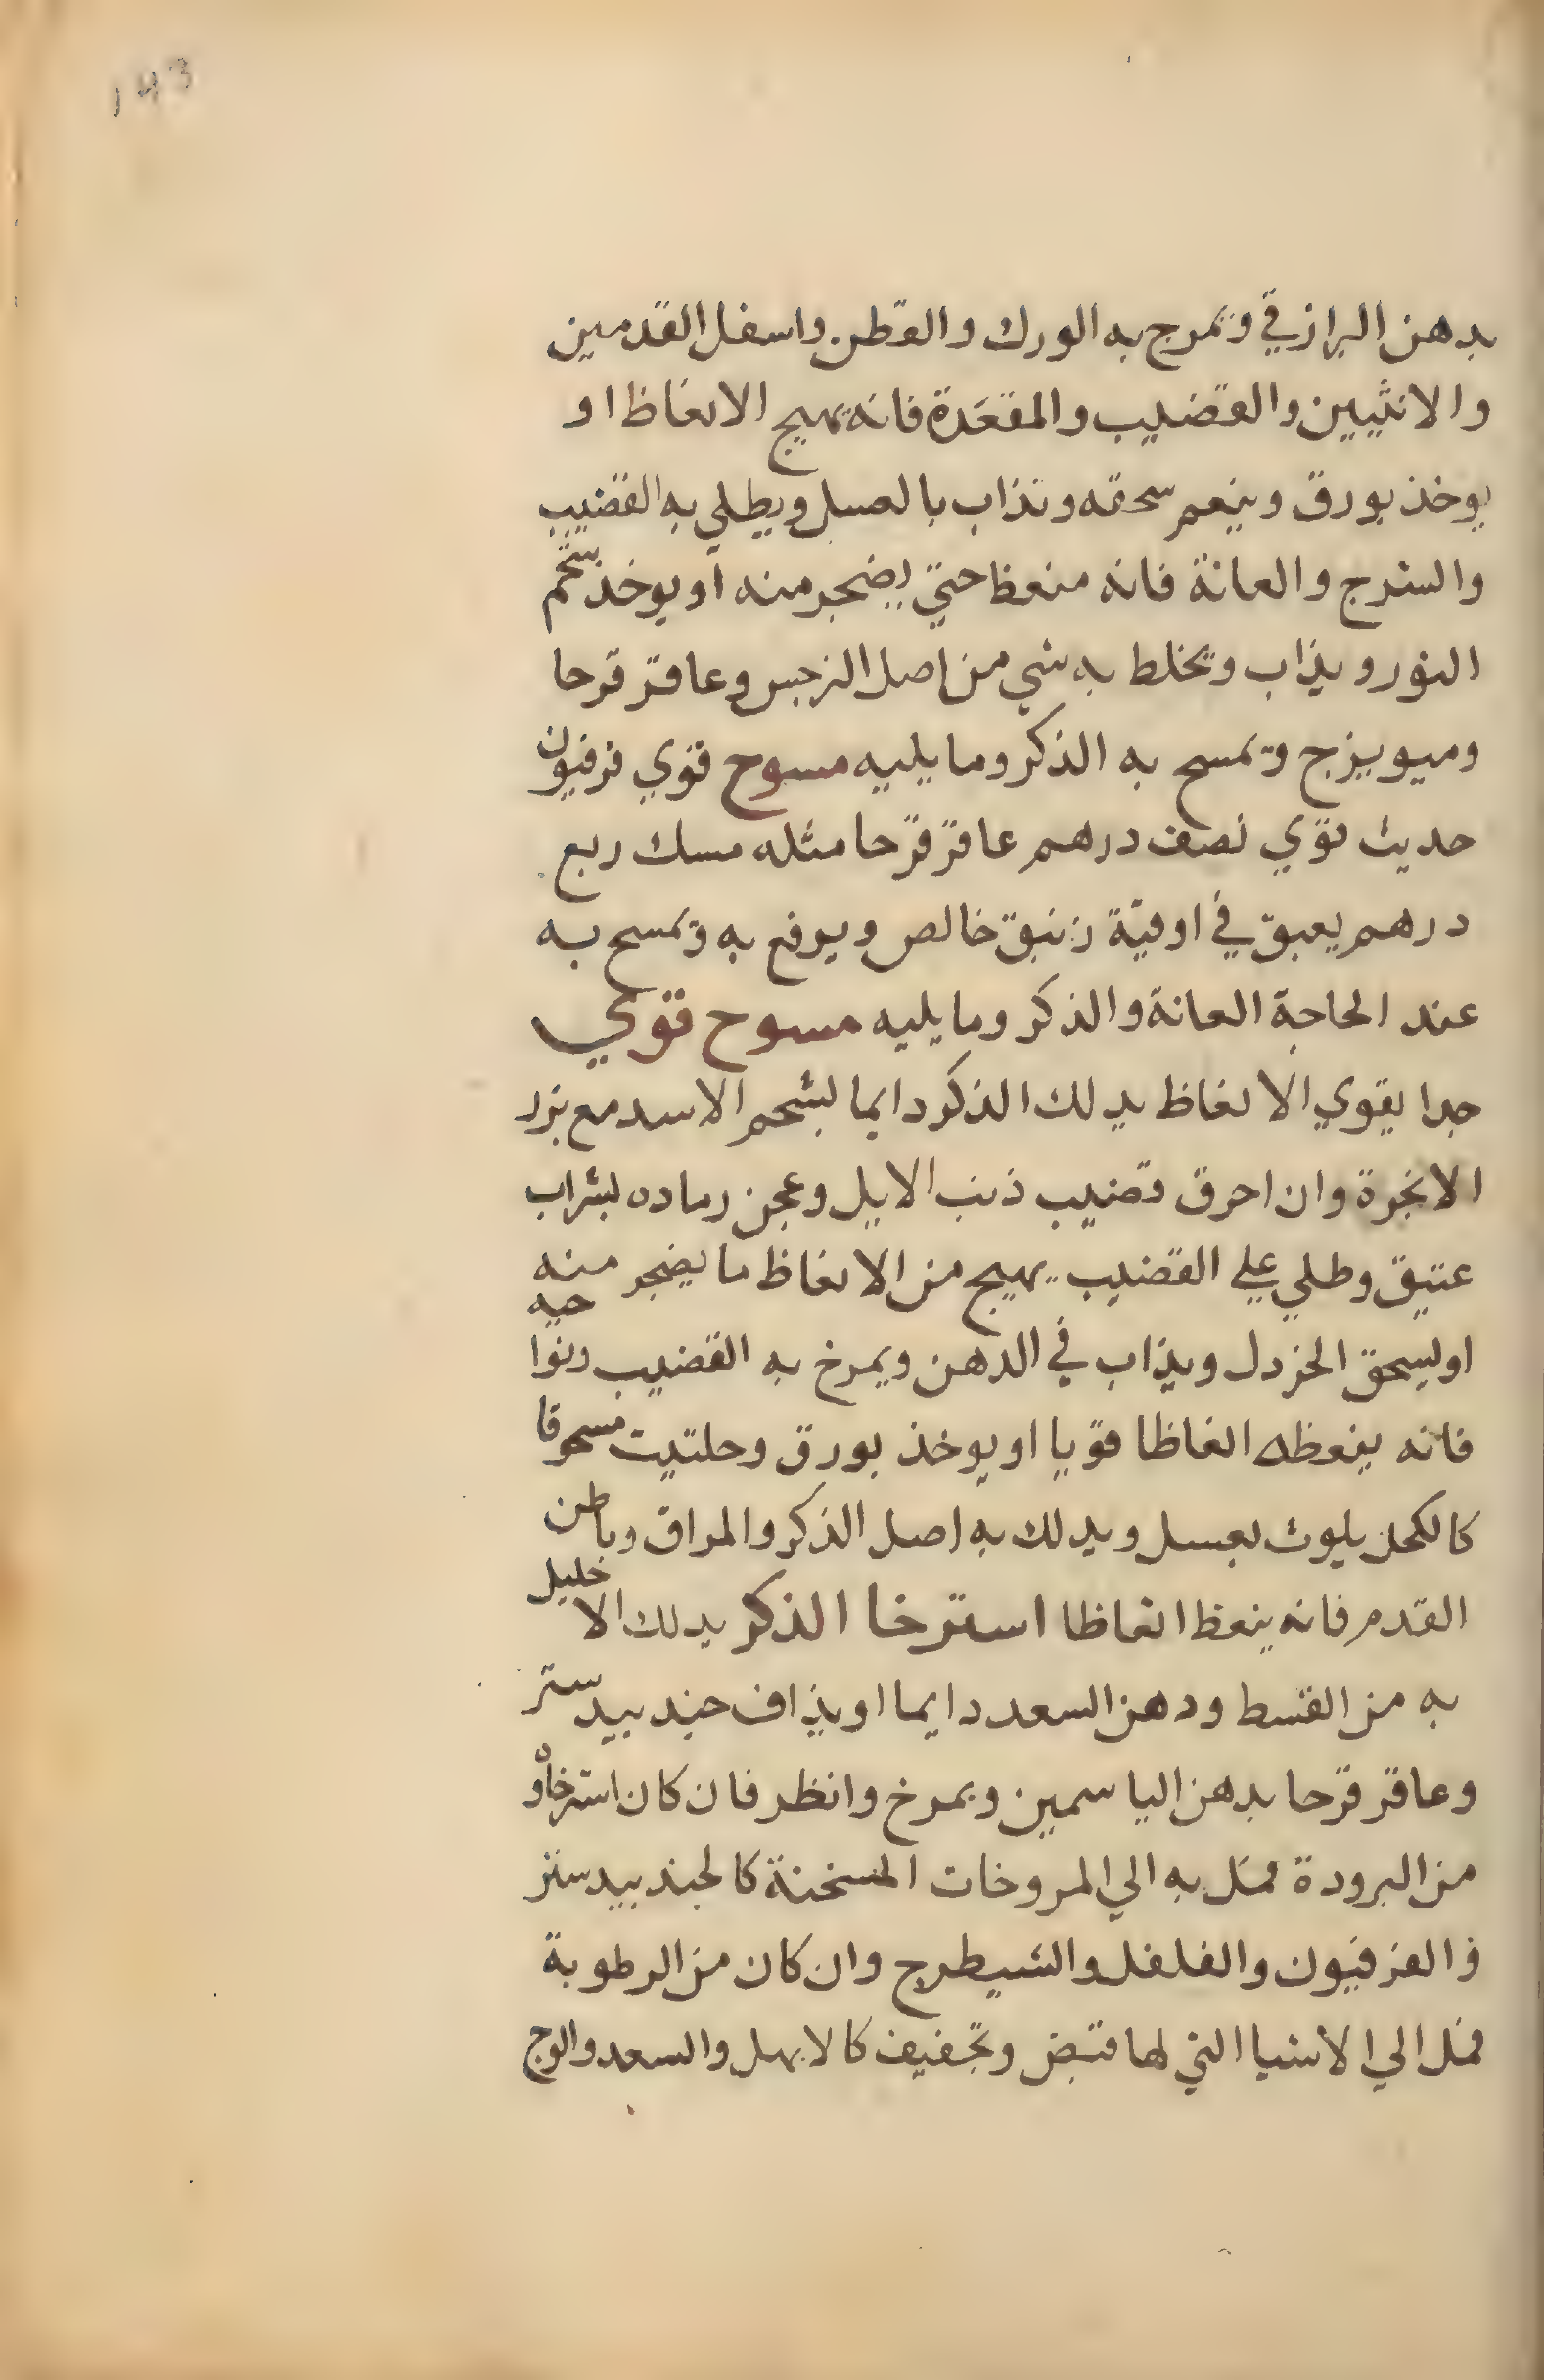 143
بدهن البرازقي وتمرج به الورك والقطن واسفل القدمين
والانثيين والقضيب والمقعدة فانه يهيج الانعاظ او
يوخذ بورق وينعم سحقه وتذاب بالعسل ويطلي به القضيب
والشرج والعانة فانه منعظ حتي يضجر منه او يوخذ شحم
الثور ويذاب ويخلط به شي من اصل النرجس وعاقر قرحا
وميويزج وتمسح به الذكر وما يليه مسوح قوي فرفيون
حديث قوي نصف درهم عاقر قرحا مثله مسك ربع
درهم يعبق في اوقية زنبق خالص ويرفع به وتمسح به
عند الحاجة العانة والذكر وما يليه مسوح قوي
جدا يقوي الانعاظ يدلك الذكر دايما بشحم الاسد مع بزر
الانجرة وان احرق قضيب ذنب الايل وعجن رماده بشراب
عتيق وطلي علي القضيب يهيج من الانعاظ ما يضجر منه
او يسحق الخردل ويذاب في الدهن ويمرخ به القضيب ونواحيه
فانه ينعظه انعاظا قويا او يوخذ بورق وحلتيت مسحوقا
كالكحل يلوث بعسل ويدلك به اصل الذكر والمراق وباطن
القدم فانه ينعظ انعاظا استرخا الذكر يدلك الاخليل
به من القسط ودهن السعد دايما او يذاف جندبيدستر
وعاقر قرحا بدهن الياسمين ويمرخ وانظر فان كان استرخاؤه
من البرودة فمل به الي المروخات المسخنة كالجندبيدستر
والفرفيون والفلفل والشيطرج وان كان من الرطوبة
فمل الي الاشيا التي لها قبض وتجفيف كالابهل والسعد والوج